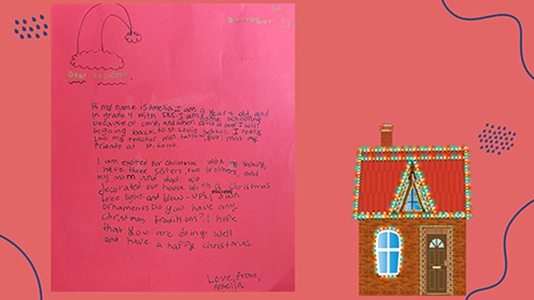 December
Dear
Hi my name is Amelia. I am 9 years old, and
in grade 4 with DLS. I am home schooling
because of covid and when covid is over I will
be going back to St. Louis school. I really
my teacher miss but miss my
friends at St. Louis.
I am excited for christmas with my family,
I have three sisters, two brothers, and
my mom and dad. We
decorated our house with a christmas
tree lights and blow-ups lawn
ornaments. Do you have any
christmas traditions? I hope
that you are doing well
and have a happy christmas.
Love, from,
Amelia